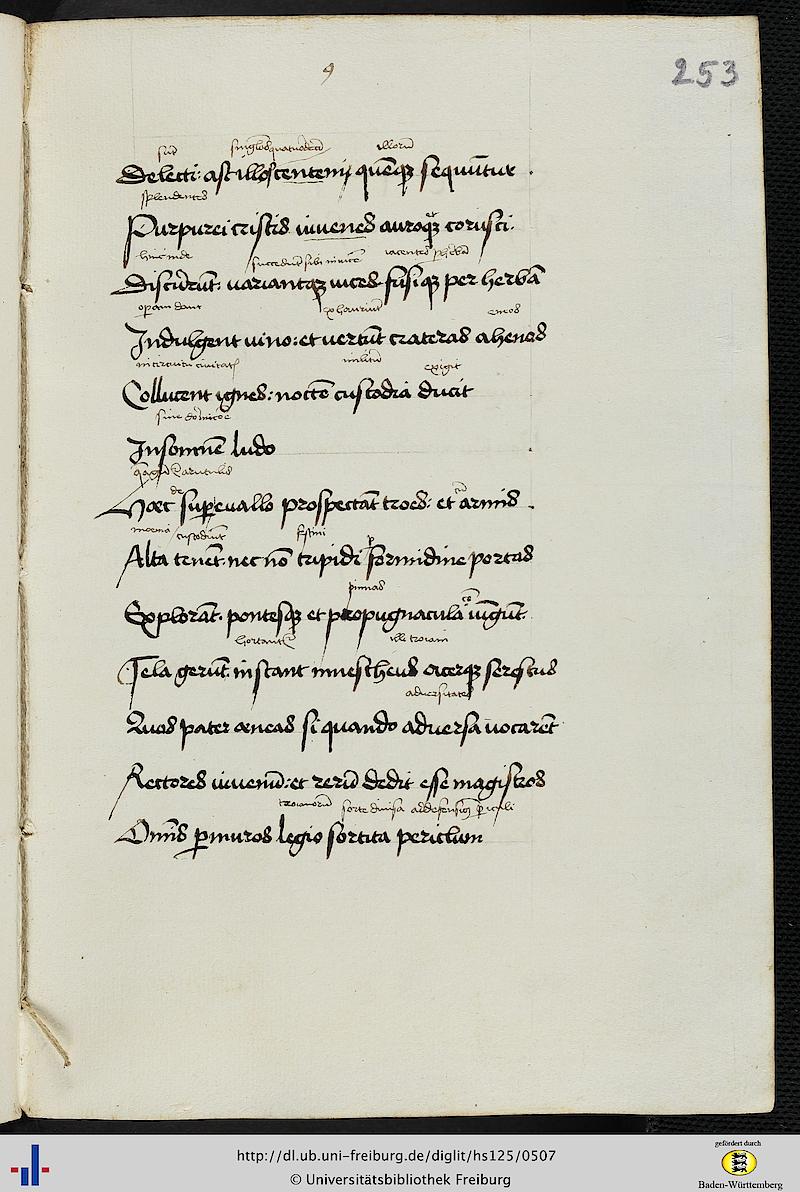 9
253
sunt illorum
Delecti: ast illos centeni quemque sequuntur.
splendentes
Purpurei cristis iuuenes auroque corusci.
hinc inde succedunt sibi inuicem iacentes
Discurrunt: uariantque uices fusique per herbā
operam dant exhauriunt eneos
Indulgent uino: et uertūt crateras ahenas
in circuitu ciuitatis militū exigit
Collucent ignes: noctē custodia ducit
sine
Insomnē ludo
de cū
Hæc supeuallo prospectāt troes: et armis.
moenia custodiūt
Alta tenēt. nec nō tripidi formidine portas
pinnas
Explorāt. pontesque et propugnacula iūgūt.
hortantur
Tela gerūt. instant mnescheus acerque serestus
aduersitates
Quos pater æneas si quando aduersa uocarēt
Rectores iuuenū: et rerū dedit esse magistros
troianorū sorte diuisa
Omīs p muros legio sortita periclum
http://dl.ub.uni-freiburg.de/diglit/hs125/0507
© Universitätsbibliothek Freiburg
gefördert durch
Baden-Württemberg